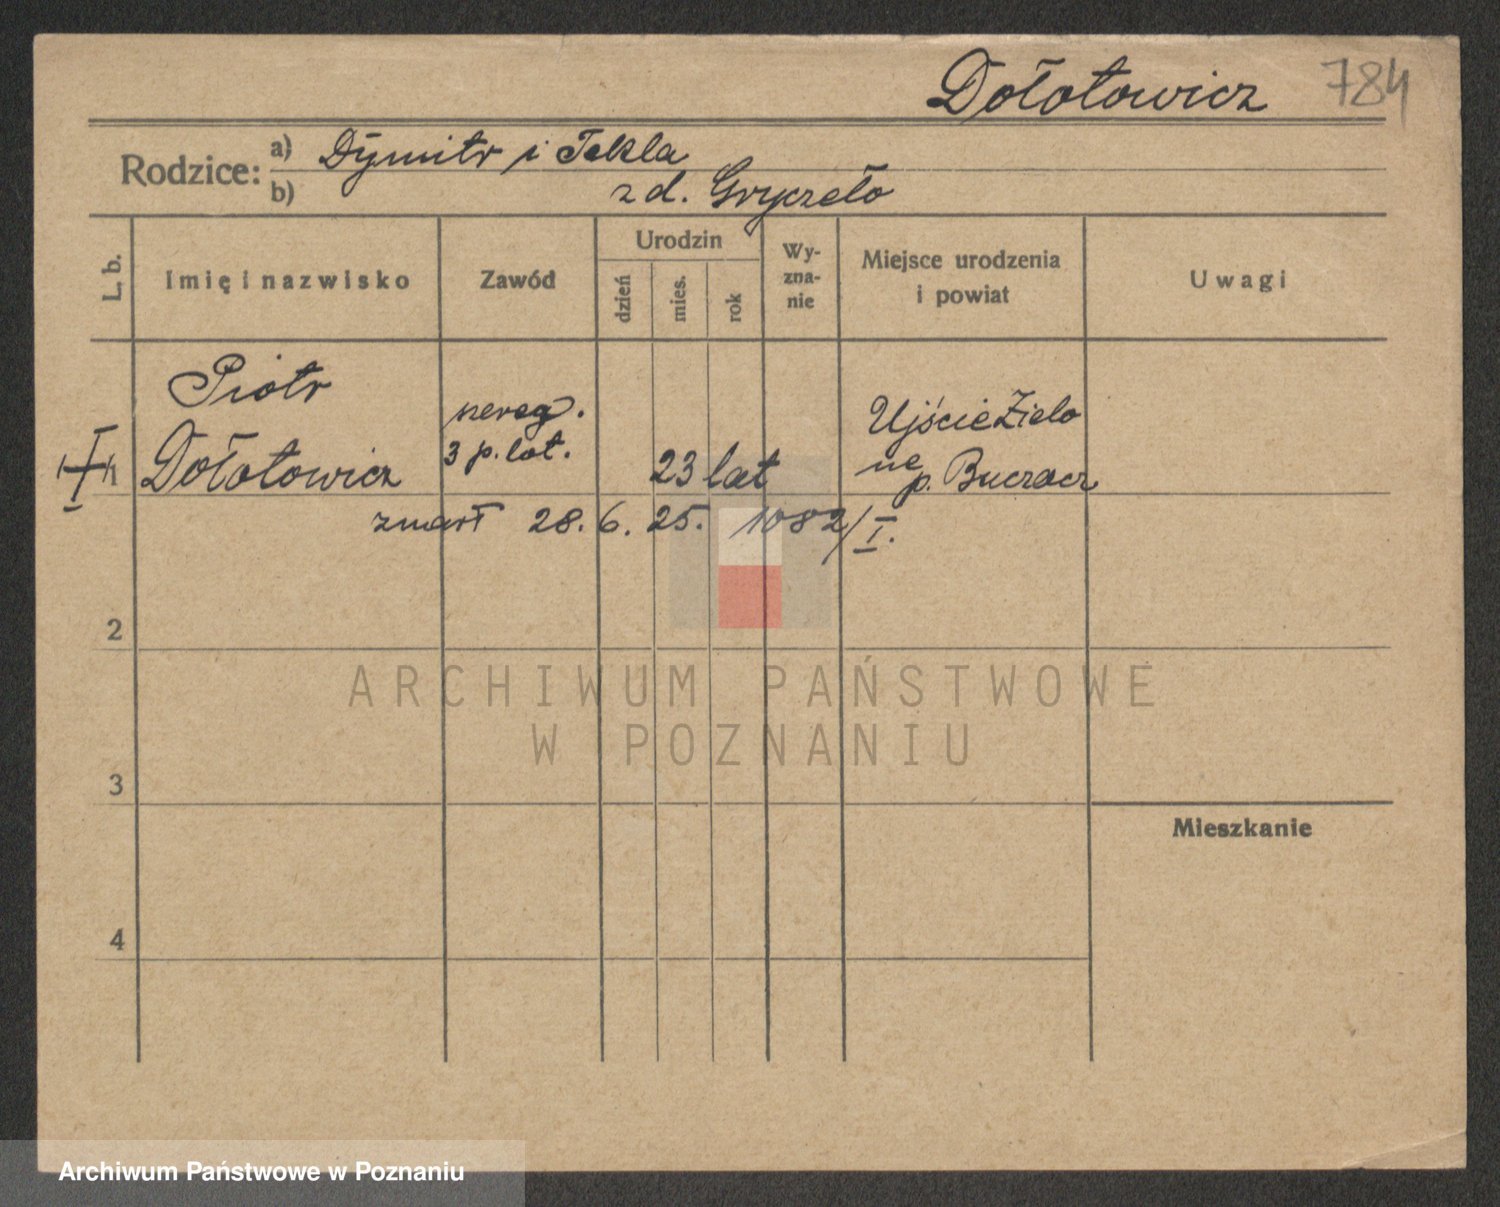 Dołotowicz 784
Rodzice: a) Dymitr i Tekla
b) z d. Gryczeło
L. b.
Imię i nazwisko
Zawód
Urodzin
dzień
mies.
rok
Wy-
zna-
nie
Miejsce urodzenia
i powiat
Uwagi
Piotr
Dołotowicz
szereg.
3 p. lot.
23 lat
Ujście Zielo
ne
p. Buczacz
zmarł 28. 6. 25. 1082/I.
2
3
4
Mieszkanie
ARCHIWUM PAŃSTWOWE
W POZNANIU
Archiwum Państwowe w Poznaniu